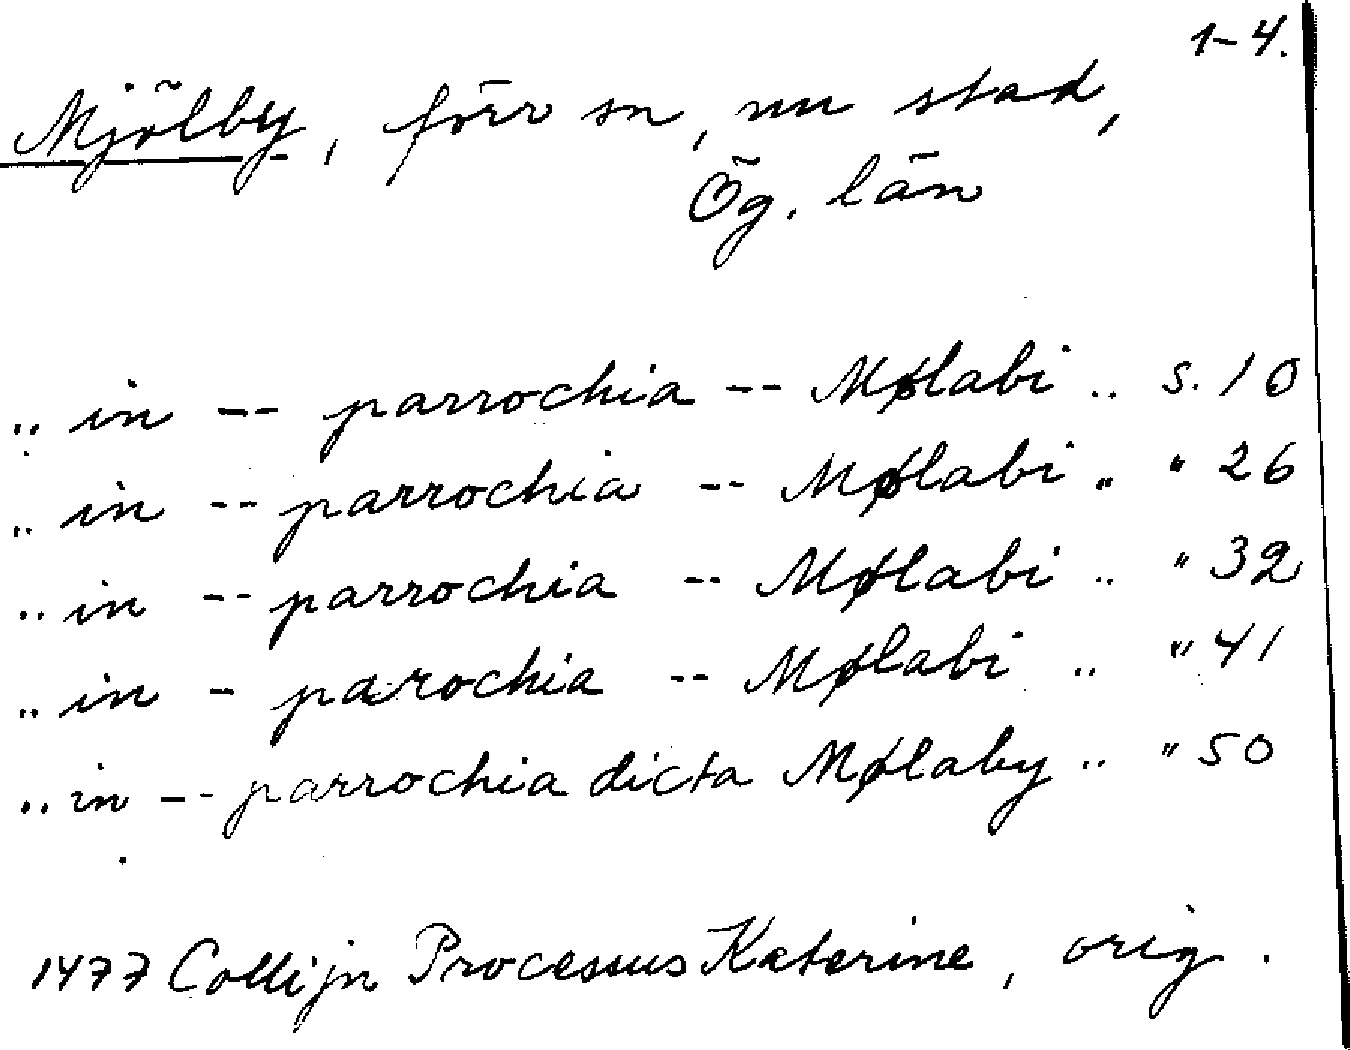 1-4.
Mjölby, förr sn, nu stad,
Ög. län
.. in -- parrochia -- Mølabi .. s. 10
.. in -- parrochia -- Mølabi .. " 26
.. in -- parrochia -- Mølabi .. " 32
.. in - parochia -- Mølabi .. " 41
.. in -- parrochia dicta Mølaby .. " 50
1477 Collijn Processus Katerine, orig.